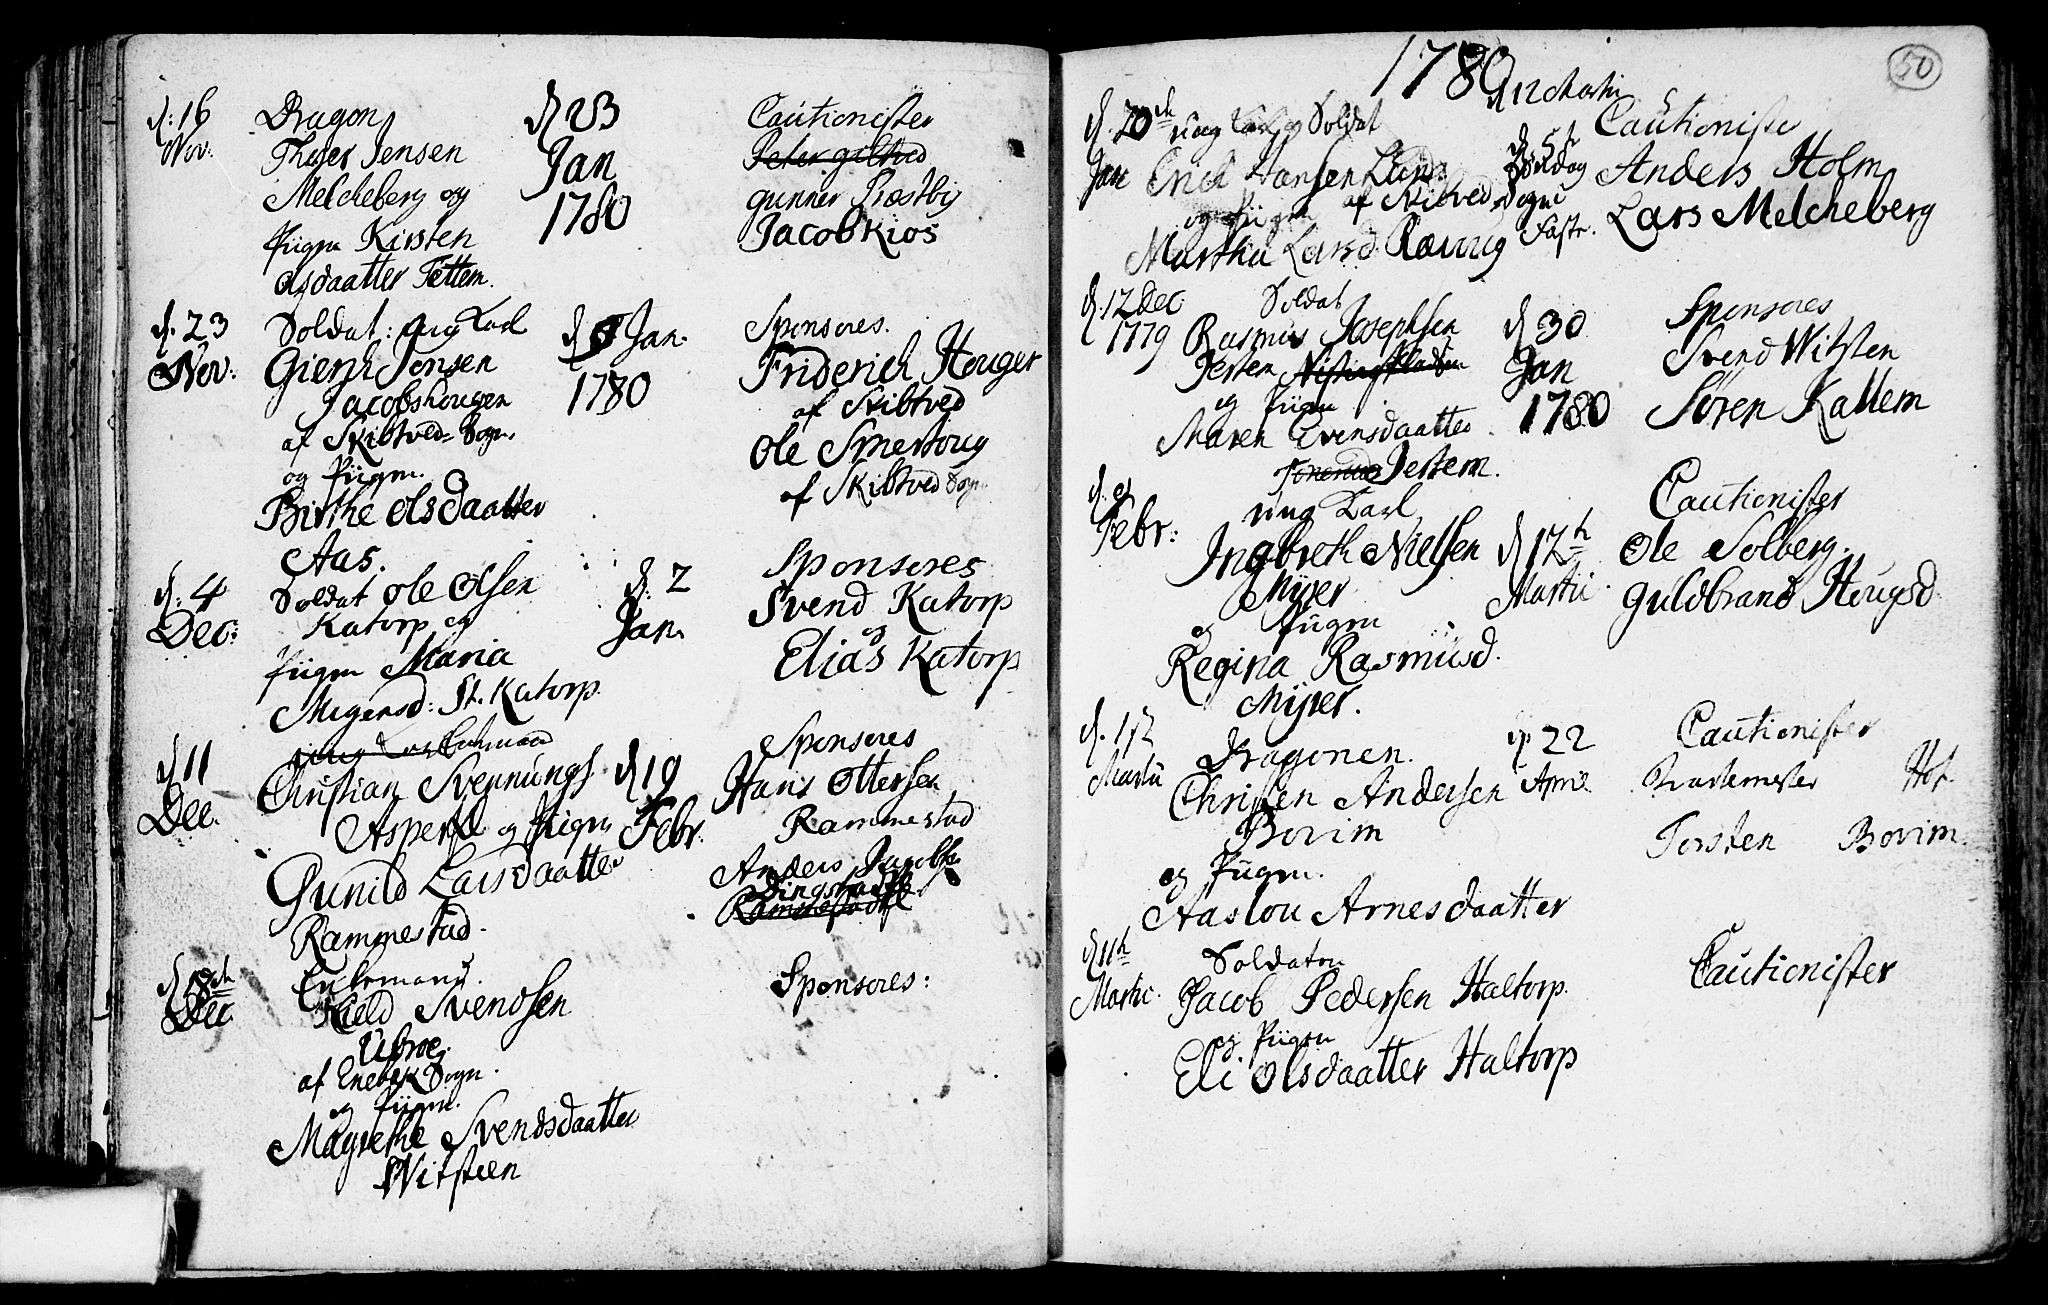 d: 16 Nov:
Dragon
Thoer Jensen
Melcheberg og
Piigen Kirsten
Olsdaatter Tettem.
d 23
Jan
1780
Cautionister
gunner Præstby
Jacob Kiøs
d. 23
Nov:
Soldat: ung Karl
Giert Jensen
Jacobshougen
af Skibtved Sogn.
og Piigen.
Birthe Olsdaatter
Aas.
Jan.
1780
Sponsores.
Friderich Houger
af Skibtved
Ole Smertoug
af Skibtved Sogn
d: 4
Dec:
Soldat Ole Olsen
Katorp og
Piigen Maria
Mogensd: St. Katorp.
d. 2
Jan.
Sponsores
Svend Katorp
og
Elias Katorp
d 11
Dec.
Christian Svennungs
og Piigen
Gunild Larsdaatter
Rammestad.
d 19
Febr.
Sponsores
Hans Ottersen
Rammestad
Anders Jacobs
d 18de
Dec
Enkemand.
Kield Svendsen
Ubroe.
af Enebak Sogn.
og Piigen.
Magrethe Svendsdaatter
Witsteen
Sponsores:
50
1780
d. 20de
Jan
ung Karl og Soldat
Erich Hansen Lund
af Skibtved Sogn
og Piigen
Martha Larsd. Rauug
d 12 Martii
Faste.
Cautionister
Anders Holm
Lars Melcheberg
d. 12 Dec.
1779
Soldat
Rasmus Josephsen
Jesten
og Piigen
Maren Evensdaatter
Jestem.
d 30
Jan
1780
Sponsores
Svend Witsten
Søren Kallem
d. 9
Febr:
ung Karl
Ingbreth Nielsen
Myrer
og Piigen
Regina Rasmusd.
Myrer.
d 12th
Martii
Cautionister
Ole Solberg.
Guldbrand Hougsd.
d. 12
Martii
Dragonen.
Christen Andersen
Bovim
og Piigen.
Aaslou Arnesdaatter
d. 22
April.
Cautionister
Hof.
Torsten Bovim.
d 11th
Martii.
Soldaten
Jacob Pedersen Haltorp.
og Piigen
Eli Olsdaatter Haltorp
Cautionister